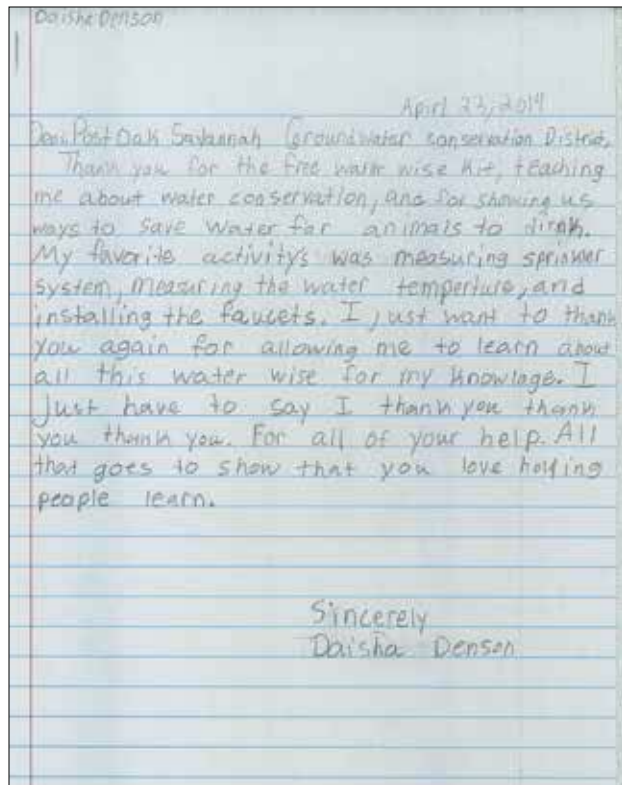 Daisha Denson
Apirl 23, 2014
Dear Post Oak Savannah Groundwater conservation District,
Thank you for the free water wise Kit, teaching
me about water conservation, and for showing us
ways to save water for animals to dirnk.
My favorite activity's was measuring sprinkler
system, measuring the water temperture, and
installing the faucets. I just want to thank
you again for allowing me to learn about
all this water wise for my knowlage. I
Just have to say I thank you thank
you thank you. For all of your help. All
that goes to show that you love
people learn.
Sincerely
Daisha Denson